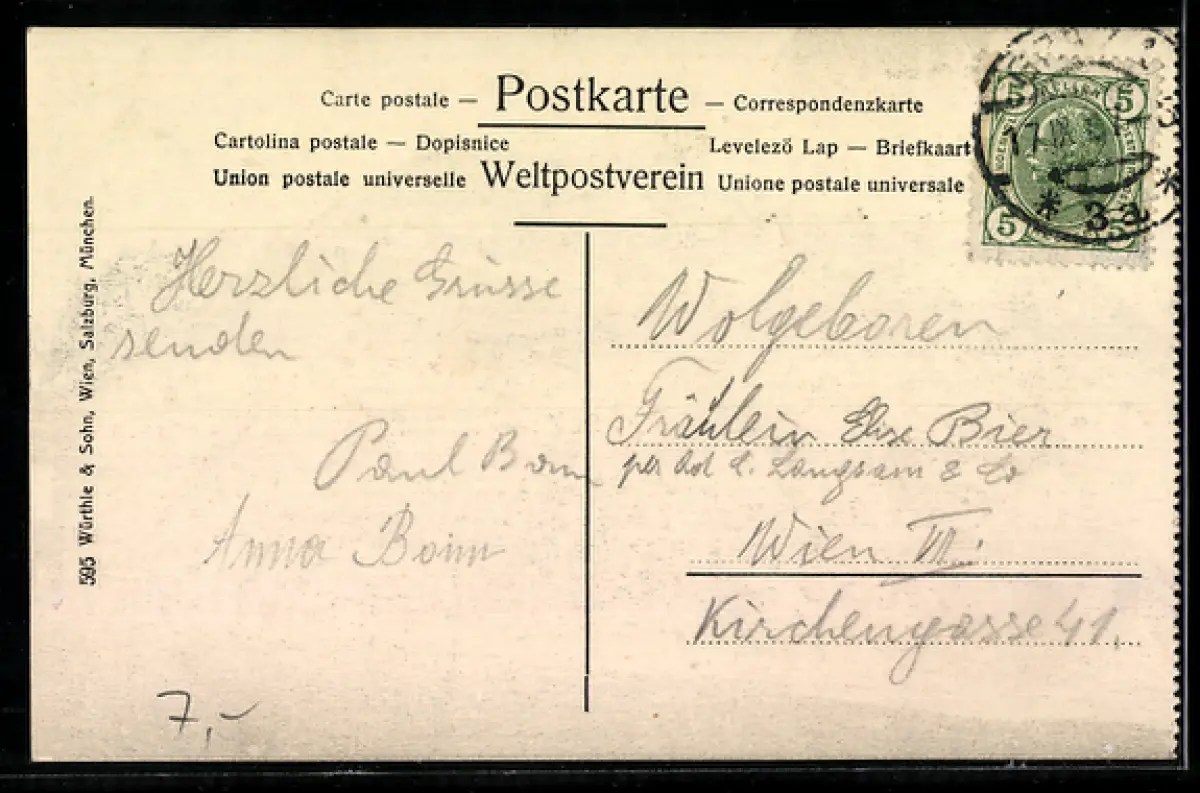 Carte postale — Postkarte — Correspondenzkarte
Cartolina postale — Dopisnice
Levelező Lap — Briefkaart
Union postale universelle Weltpostverein Unione postale universale
5 5
5 5
17 IX
* 3a *
595 Würthle & Sohn, Wien, Salzburg, München.
Herzliche Grüsse
senden
Paul
Anna
Wolgeboren
Fräulein Else Bier
per Ad. L. Langsam & Co
Wien VII.
Kirchengasse 41.
7,-